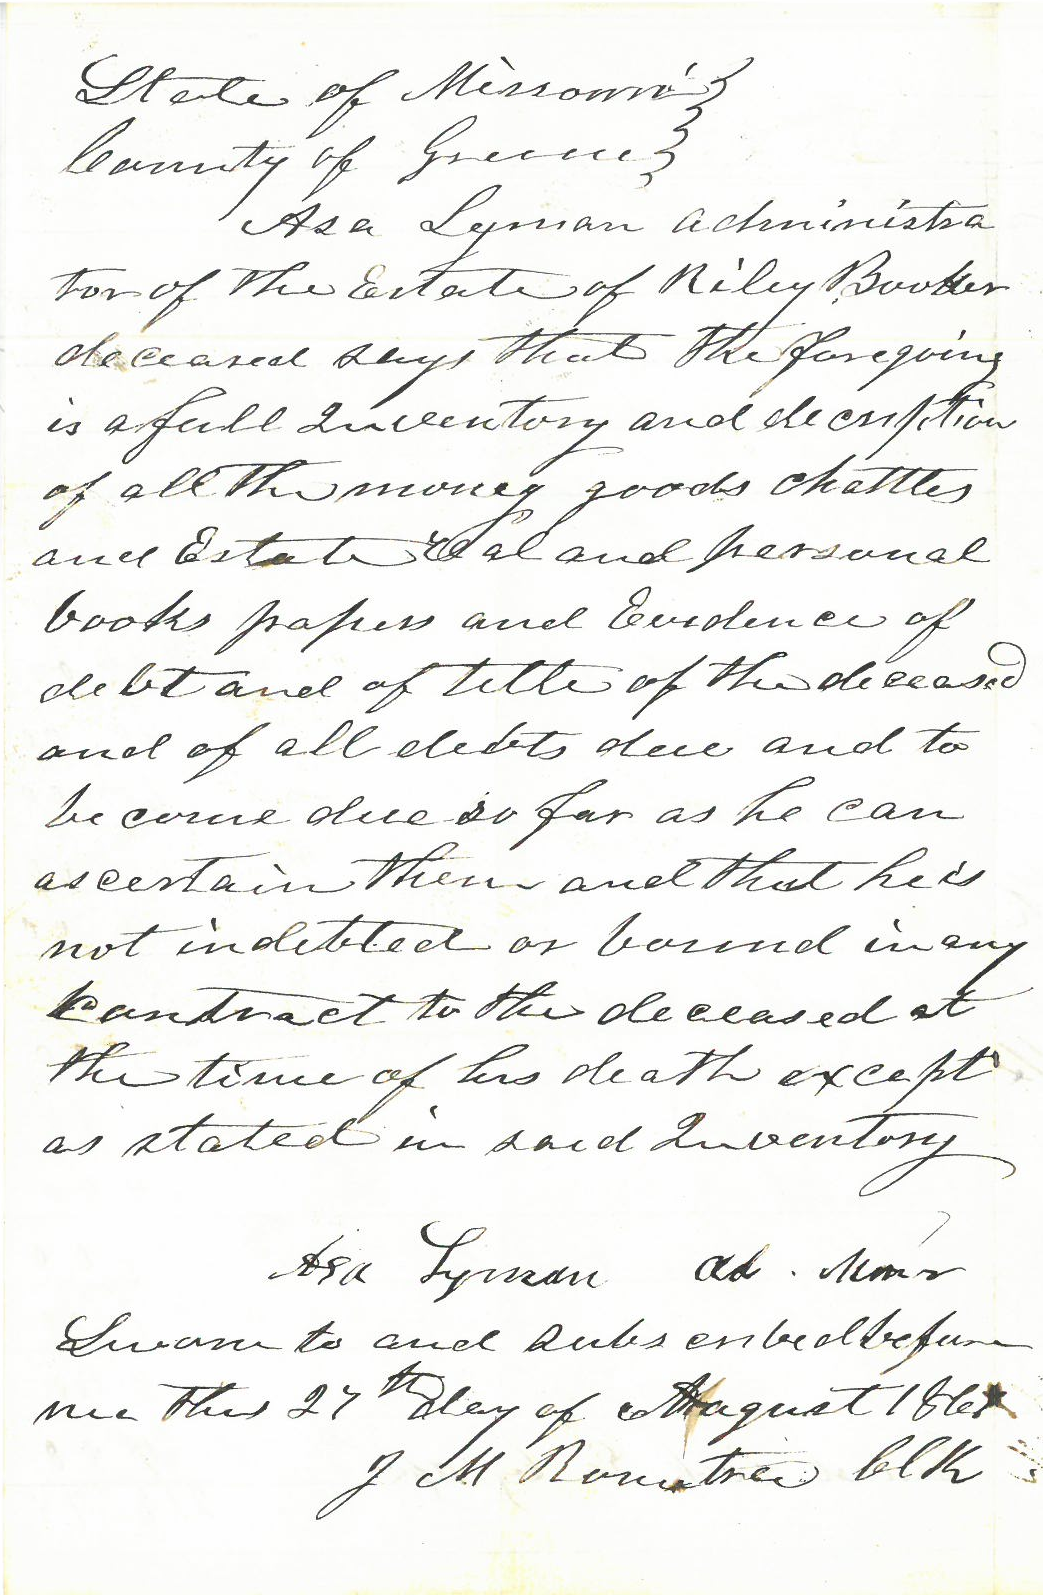 State of Missouri }
County of Greene }
Asa Lyman administra
tor of the Estate of Riley Booker
deceased says that the foregoing
is a full Inventory and decription
of all the money goods chattles
and Estate real and personal
books papers and Evidence of
debt and of title of the deceased
and of all debts due and to
become due so far as he can
ascertain them and that he is
not indebted or bound in any
contract to the deceased at
the time of his death except
as stated in said Inventory
Asa Lyman Ad. Minr
Sworn to and subscribed before
me this 27th day of August
J M Rountree Clk